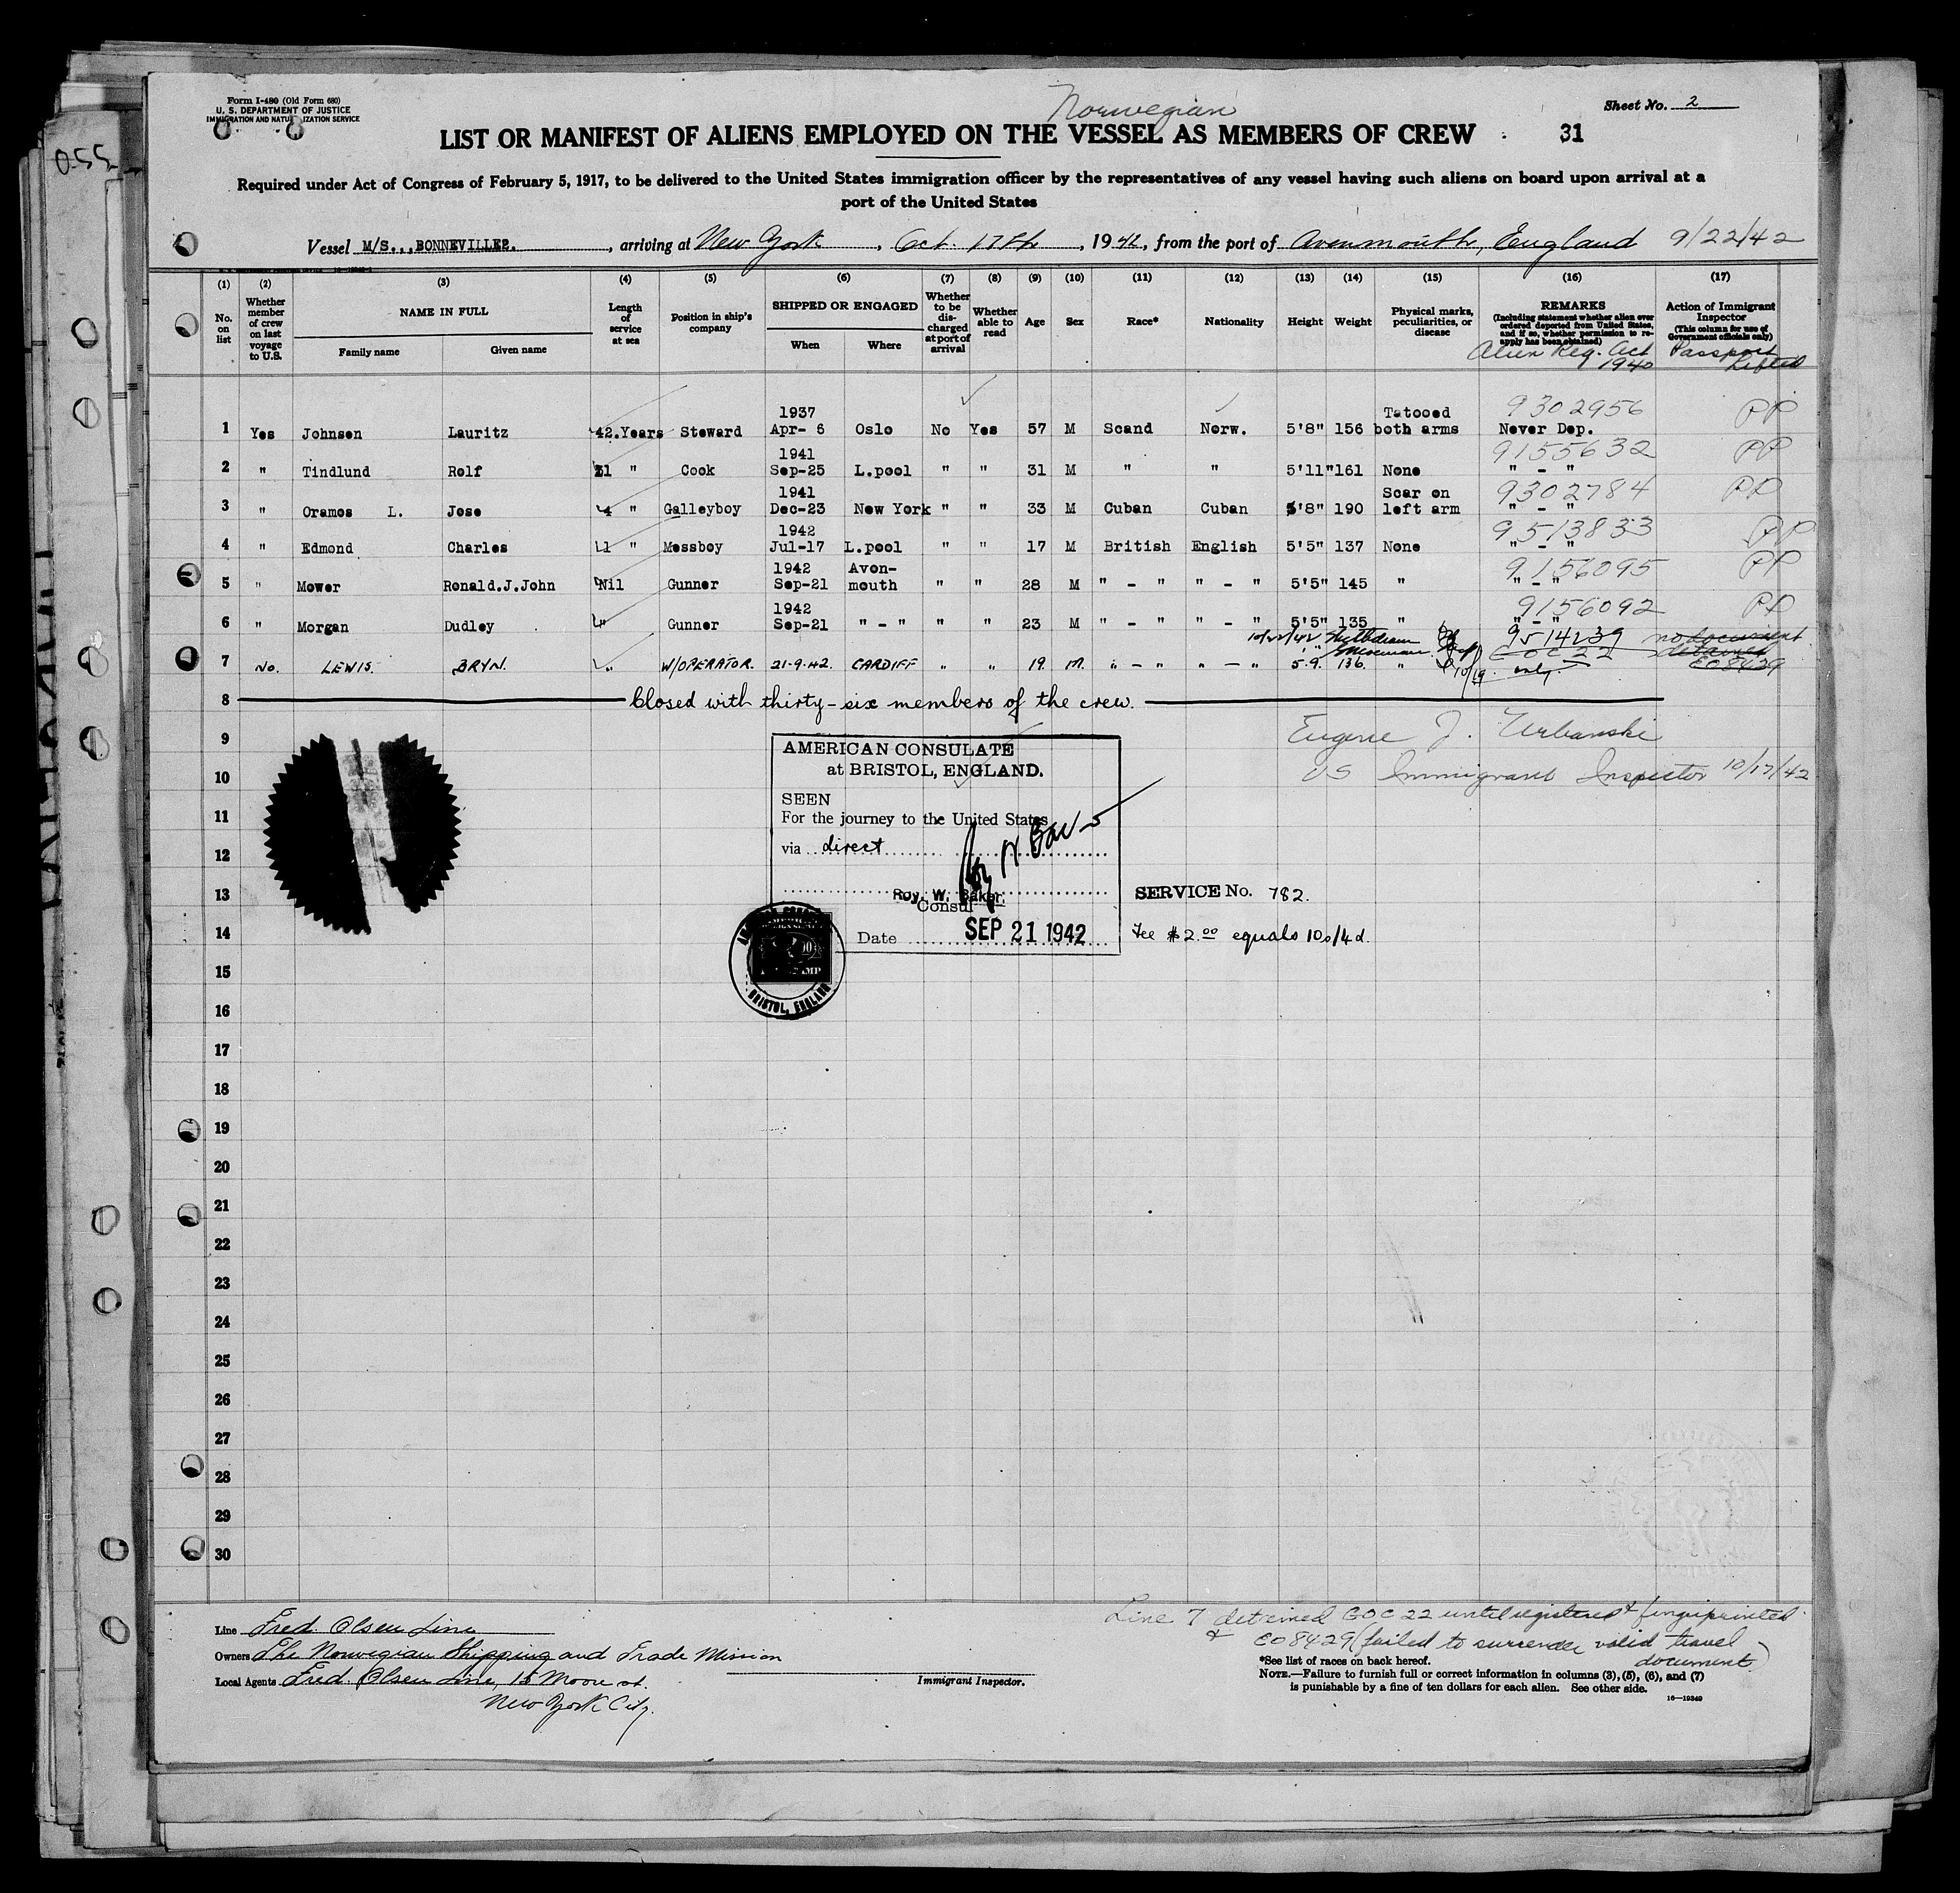 0-55
Form I-480 (Old Form 680)
U. S. DEPARTMENT OF JUSTICE
IMMIGRATION AND NATURALIZATION SERVICE
Norwegian
Sheet No. 2
LIST OR MANIFEST OF ALIENS EMPLOYED ON THE VESSEL AS MEMBERS OF CREW 31
Required under Act of Congress of February 5, 1917, to be delivered to the United States immigration officer by the representatives of any vessel having such aliens on board upon arrival at a
port of the United States
Vessel M/S.,,BONNEVILLE?. , arriving at New York , Oct. 17th , 1942, from the port of Avonmouth, England 9/22/42
(1) (2) (3) (4) (5) (6) (7) (8) (9) (10) (11) (12) (13) (14) (15) (16) (17)
No. on list
Whether member of crew on last voyage to U.S.
NAME IN FULL
Family name
Given name
Length of service at sea
Position in ship's company
SHIPPED OR ENGAGED
When
Where
Whether to be discharged at port of arrival
Whether able to read
Age
Sex
Race*
Nationality
Height
Weight
Physical marks, peculiarities, or disease
REMARKS
(Including statement whether alien ever ordered deported from United States, and if so, whether permission to re-apply has been obtained)
Alien Reg. Act 1940
Action of Immigrant Inspector
(This column for use of Government officials only)
Passport Lifted
1 Yes Johnsen Lauritz 42.Years Steward 1937 Apr- 6 Oslo No Yes 57 M Scand Norw. 5'8" 156 Tatooed both arms 9302956 Never Dep. PP
2 " Tindlund Rolf 31 " Cook 1941 Sep-25 L.pool " " 31 M " " 5'11" 161 None 9155632 " - " PP
3 " Oramos L. Jose 4 " Galleyboy 1941 Dec-23 New York " " 33 M Cuban Cuban 5'8" 190 Scar on left arm 9302784 " - " PP
4 " Edmond Charles 1 " Messboy 1942 Jul-17 L.pool " " 17 M British English 5'5" 137 None 9513833 " - " PP
5 " Mower Ronald.J.John Nil Gunner 1942 Sep-21 Avon-mouth " " 28 M " - " " - " 5'5" 145 " 9156095 " - " PP
6 " Morgan Dudley " Gunner 1942 Sep-21 " - " " " 23 M " - " " - " 5'5" 135 " 9156092 " - " PP
10/22/42 Withdrawn 9514239 no document
7 No. LEWIS. BRYN. " W/OPERATOR. 21-9-42. CARDIFF " " 19. M. " - " " - " 5.9. 136. " GOC 22 only. 10/19 detained EO 8429
8 Closed with thirty-six members of the crew.
9 Eugene J. Urbanski
10 US Immigrant Inspector 10/17/42
AMERICAN CONSULATE
at BRISTOL, ENGLAND.
SEEN
11 For the journey to the United States
12 via direct
Roy W Baker
13 Roy. W. Baker.
Consul
SERVICE No. 782.
14 Date SEP 21 1942
Fee $2.00 equals 10s/4d.
BRISTOL, ENGLAND
15
16
17
18
19
20
21
22
23
24
25
26
27
28
29
30
Line Fred. Olsen Line
Owners The Norwegian Shipping and Trade Mission
Local Agents Fred. Olsen Line, 15 Moore st.
New York City.
Immigrant Inspector.
Line 7 detained GOC 22 until registered & fingerprinted
& EO 8429 (failed to surrender valid travel
document)
*See list of races on back hereof.
NOTE.—Failure to furnish full or correct information in columns (3), (5), (6), and (7)
is punishable by a fine of ten dollars for each alien. See other side.
16—19340